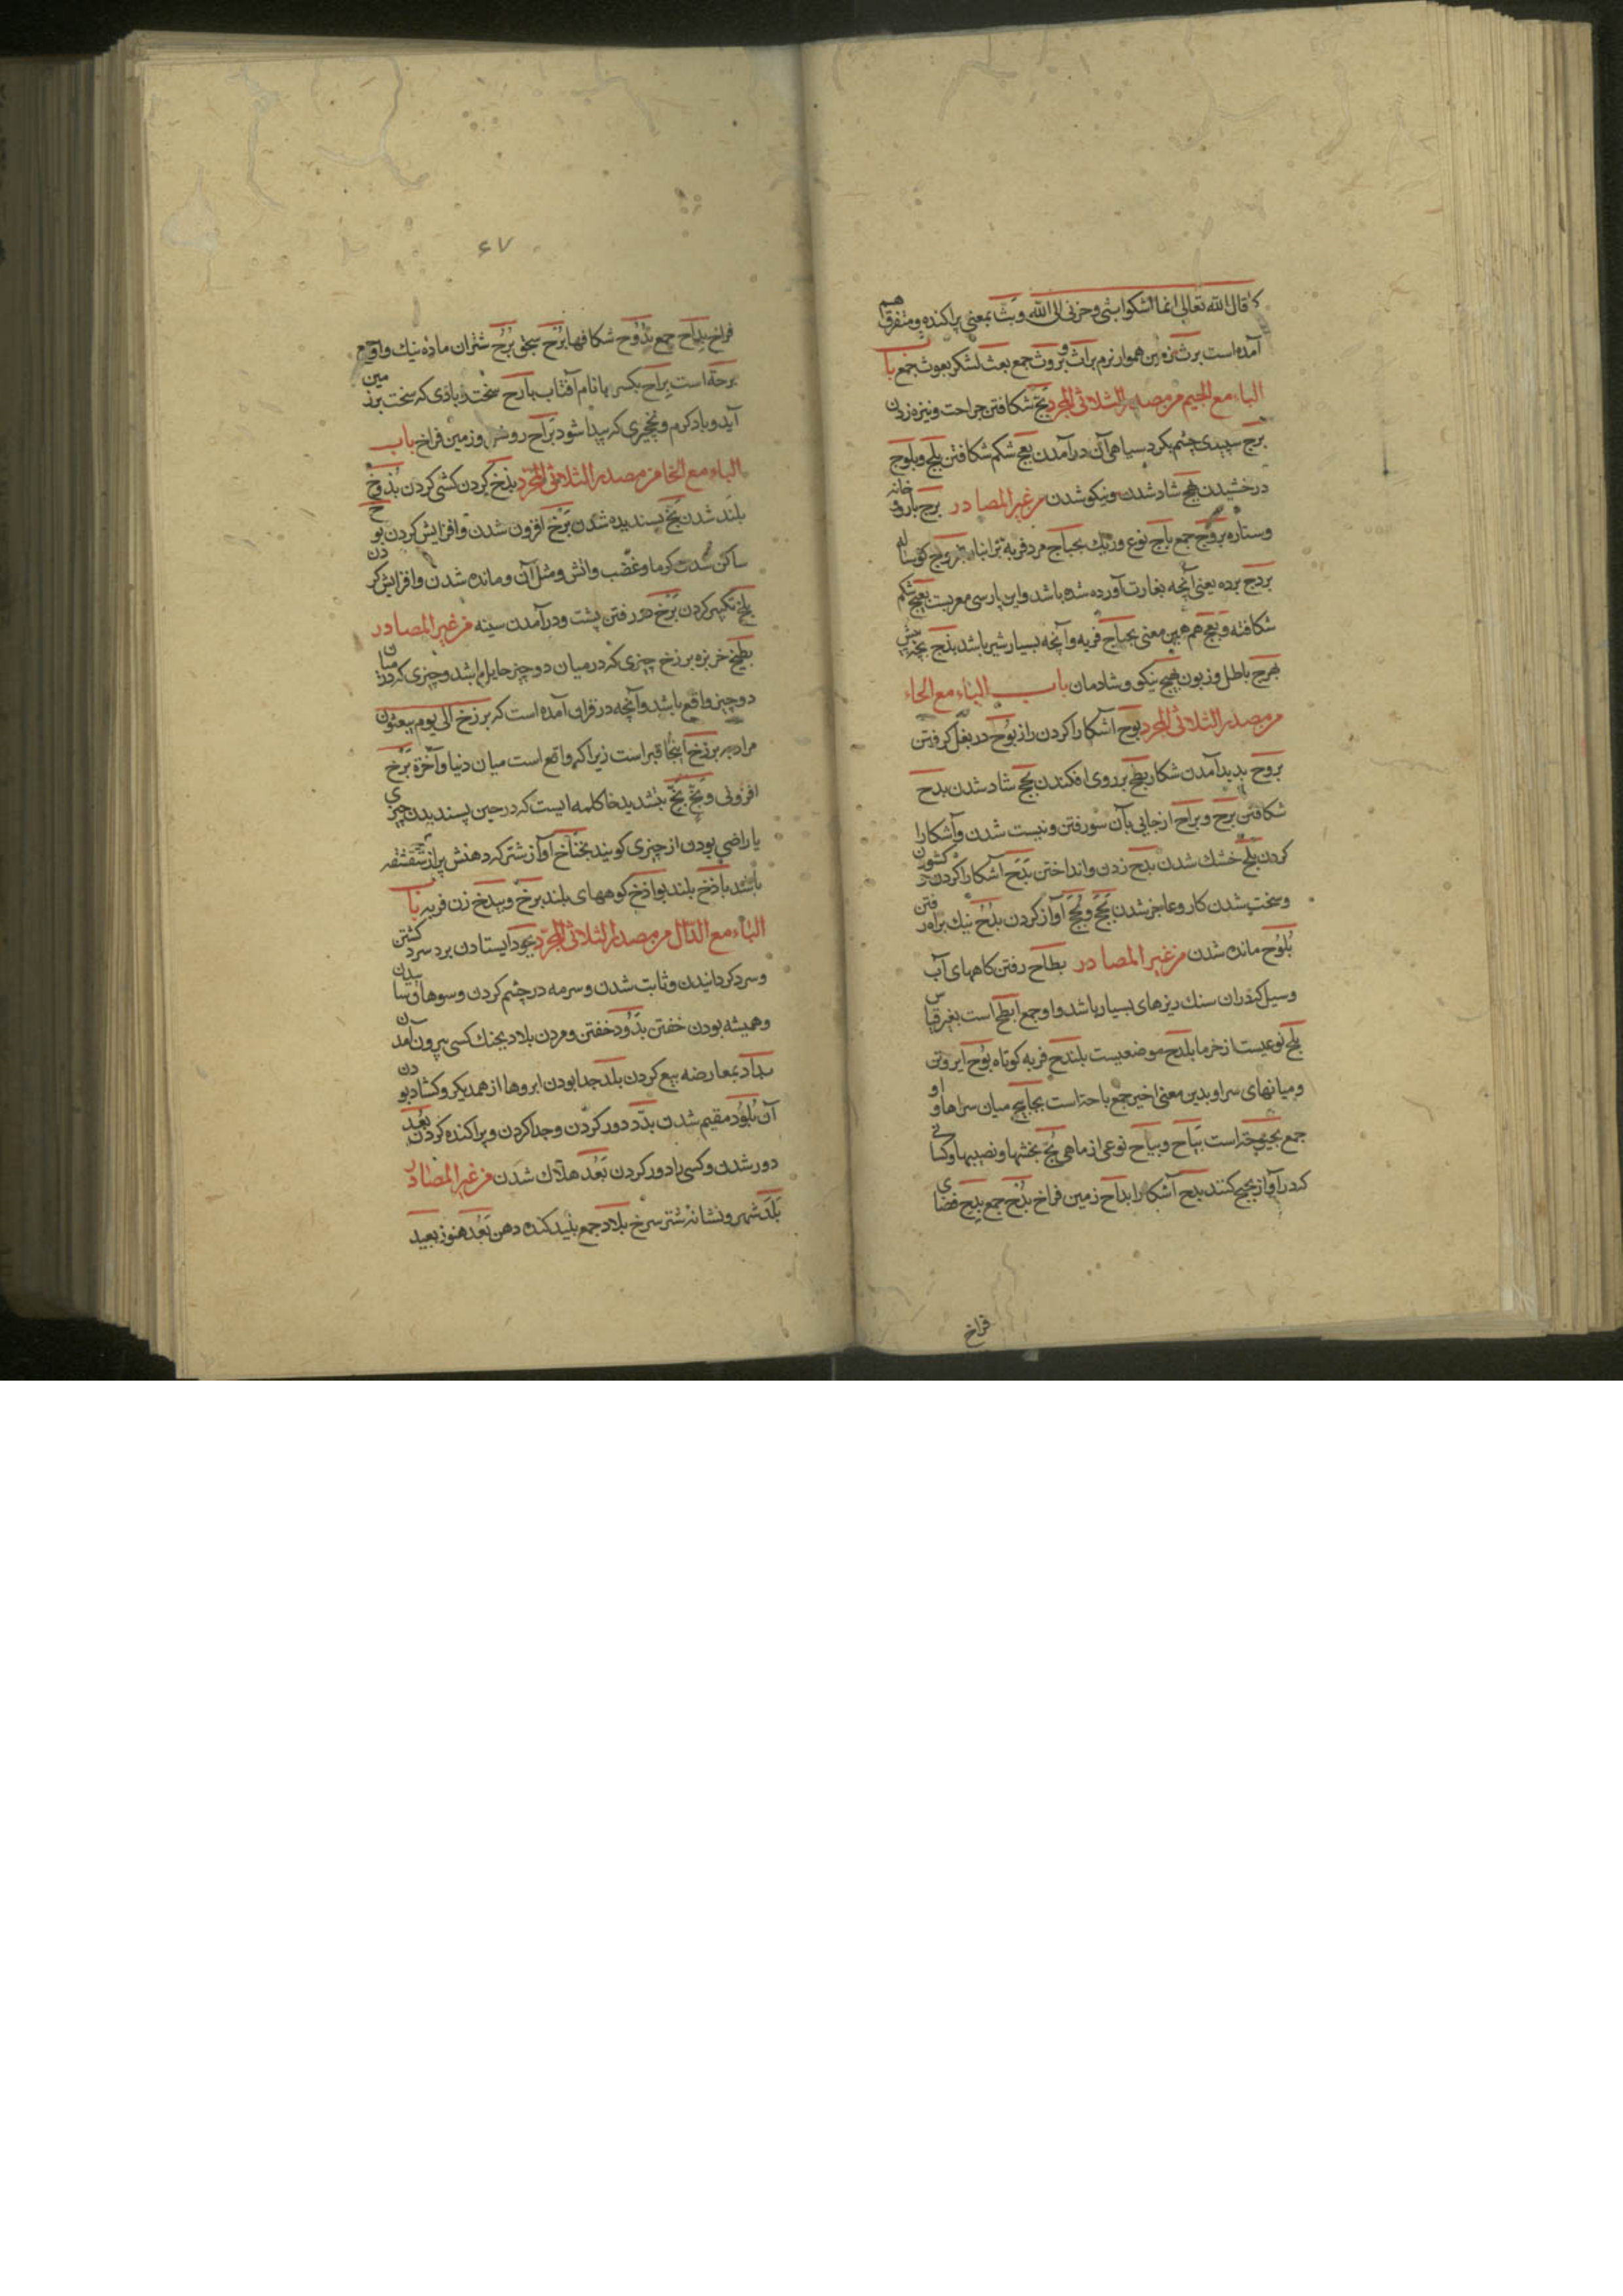 كما قال الله تعالى انما اشكوا بثى وحزنى الى الله وبث بمعنى پراكنده ومتفرق هم
آمده است برث زمين هموار نرم براث وبروث جمع بعث لشكر بعوث جمع باب
الباء مع الجيم من مصدر الثلاثى المجرد بج شكافتن جراحت ونيزه زدن
برج سپيدى چشم بكرد سياهى آن درآمدن بعج شكم شكافتن بلج وبلوج
درخشيدن بهج شاد شدن ونيكو شدن من غير المصادر برج باروى خانه
وستاره بروج جمع باج نوع ورنك بجباج مرد فربه
بردج برده يعنى آنچه بغارت آورده شده باشد واين پارسى معربست بعيج شكم
شكافته وبعج هم همين معنى بجباج فربه وآنچه بسيار شير باشد بذج بچه ميش
بهرج باطل وزبون بهيج نيكو وشادمان باب الباء مع الحاء
من مصدر الثلاثى المجرد بوح آشكارا كردن راز بوح در بغل كرفتن
بروح پديد آمدن شكار بطح بر روى افكندن بجح شاد شدن بدح
شكافتن برح وبراح از جايى بآن سو رفتن ونيست شدن وآشكارا
كردن بلح خشك شدن بدح زدن وانداختن بدح آشكارا كردن
وسخت شدن كار وعاجز شدن بحح وبحح آواز كردن بدح نيك براه رفتن
بلوح مانده شدن من غير المصادر بطاح رفتن كاههاى آب
وسيل كه در آن سنك ريزهاى بسيار باشد واو جمع ابطح است بغير قياس
بلح نوعيست از خرما بلدح موضعيست بلندح فربه كوتاه بوح
وميانهاى سرا وبدين معنى اخير جمع باحة است بحابح ميان سراها واو
جمع بحبوحة است بياح وبياح نوعى از ماهى بح بخشها ونصيبها وكسانى
كه در آواز بحح كنند بدح آشكارا بداح زمين فراخ بدح جمع بدح فضاى
فراخ
۶۷
فراخ بداح جمع بدوح شكافها برح سختى برح شتران ماده نيك واو جمع
برحة است براح بكسر با نام آفتاب بارح سخت وبادى كه سخت بر زمين
آيد وباد كرم ونخچيرى كه پيدا شود براح روشن وزمين فراخ باب
الباء مع الخا من مصدر الثلاثى المجرد بذخ كردن كشى كردن بذوخ
بلند شدن بخ پسنديده شدن برخ افزون شدن وافزايش كردن بوخ
ساكن شدن كرما وغضب واتش ومثل آن ومانده شدن وافزايش كردن
بلخ تكبر كردن بزخ در رفتن پشت ودر آمدن سينه من غير المصادر
بطيخ خربزه برزخ چيزى كه در ميان دو چيز حايل باشد وچيزى كه در ميان
دو چيز واقع باشد وآنچه در قران آمده است كه برزخ الى يوم يبعثون
مراد به برزخ اينجا قبر است زيرا كه واقع است ميان دنيا وآخرة برخ
افزونى وبخ بخ بتشديد خا كلمه ايست كه در حين پسنديدن چيزى
يا راضى بودن از چيزى كويند بخباخ آواز شتر كه دهنش پر از شقشقه
باشد باذخ بلند بواذخ كوههاى بلند برخ وبيدخ زن فربه باب
الباء مع الدال من مصدر الثلاثى المجرد بجود ايستادن برد سرد كشتن
وسرد كردانيدن وثابت شدن وسرمه در چشم كردن وسوهان سائيدن
وهميشه بودن خفتن برود خفتن ومردن بلاد بجنك كسى بيرون آمدن
بداد بمعارضه بيع كردن بلد جدا بودن ابروها از همديكر وكشاد بودن
آن بلود مقيم شدن بدد دور كردن وجدا كردن وپراكنده كردن بعد
دور شدن وكسى را دور كردن بعد هلاك شدن من غير المصادر
بلد شهر ونشانه شتر مرغ بلاد جمع بليد كند ذهن بعد هنوز بعيد